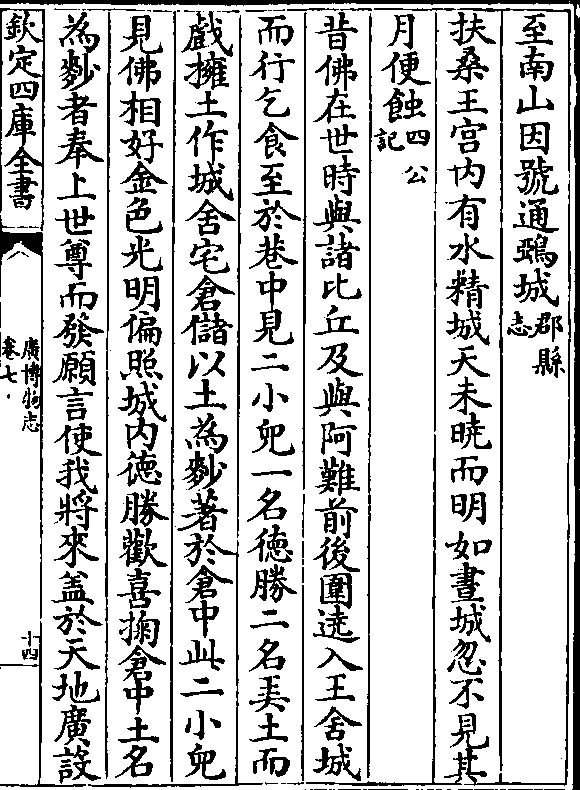 至南山因號通鵶城郡縣志
扶桑王宫内有水精城天未曉而明如晝城忽不見其
月便蝕四公記
昔佛在世時與諸比丘及與阿難前後圍遶入王舍城
而行乞食至於巷中見二小兒一名德勝二名㺯土而
戲擁土作城舍宅倉儲以土為麨著於倉中此二小兒
見佛相好金色光明偏照城内德勝歡喜掬倉中土名
為麨者奉上世尊而發願言使我將來盖於天地廣設
欽定四庫全書
廣博物志
卷七
十四